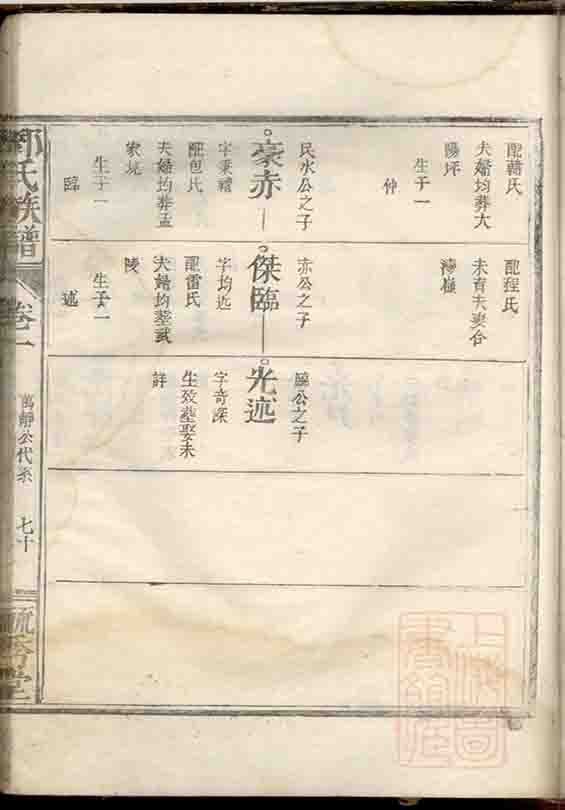 配蔣氏
夫婦均葬大
陽坪
生子一
仲
民水公之子
豪赤
字秉禮
配包氏
夫婦均葬孟
家坑
生子一
臨
配程氏
未育夫妻合
傑臨
赤公之子
字均近
配雷氏
夫婦均葬武
陵
生子一
述
臨公之子
光述
字奇深
生效葬娶未
詳
鄧氏族譜
卷一
萬靜公代系
七十